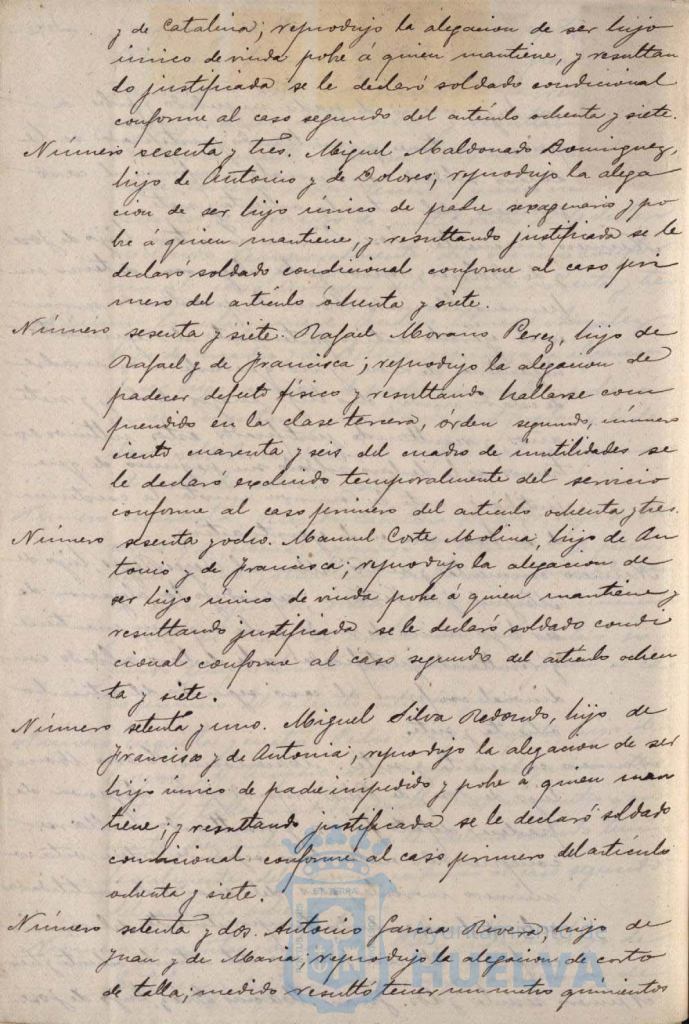 y de Catalina; reprodujo la alegacion de ser hijo
único de viuda pobre á quien mantiene, y resultan
do justificada se le declaró soldado condicional
conforme al caso segundo del artículo ochenta y siete.
Número sesenta y tres. Miguel Maldonado Dominguez,
hijo de Antonio y de Dolores; reprodujo la alega
cion de ser hijo único de padre sexagenario y po
bre á quien mantiene, y resultando justificada se le
declaró soldado condicional conforme al caso pri
mero del artículo ochenta y siete.
Número sesenta y siete. Rafael Morano Perez, hijo de
Rafael y de Francisca; reprodujo la alegacion de
padecer defecto físico y resultando hallarse com
prendido en la clase tercera, órden segundo, número
ciento cuarenta y seis del cuadro de inutilidades se
le declaró excluido temporalmente del servicio
conforme al caso primero del artículo ochenta y tres.
Número sesenta y ocho. Manuel Corte Molina, hijo de An
tonio y de Francisca; reprodujo la alegacion de
ser hijo único de viuda pobre á quien mantiene y
resultando justificada se le declaró soldado condi
cional conforme al caso segundo del artículo ochen
ta y siete.
Número setenta y uno. Miguel Silva Redondo, hijo de
Francisco y de Antonia, reprodujo la alegacion de ser
hijo único de padre impedido y pobre á quien man
tiene; y resultando justificada se le declaró soldado
condicional conforme al caso primero del artículo
ochenta y siete.
Número setenta y dos. Antonio Garcia Rivera, hijo de
Juan y de Maria; reprodujo la alegacion de corto
de talla; medido resultó tener un metro quinientos
Ayuntamiento de
HUELVA